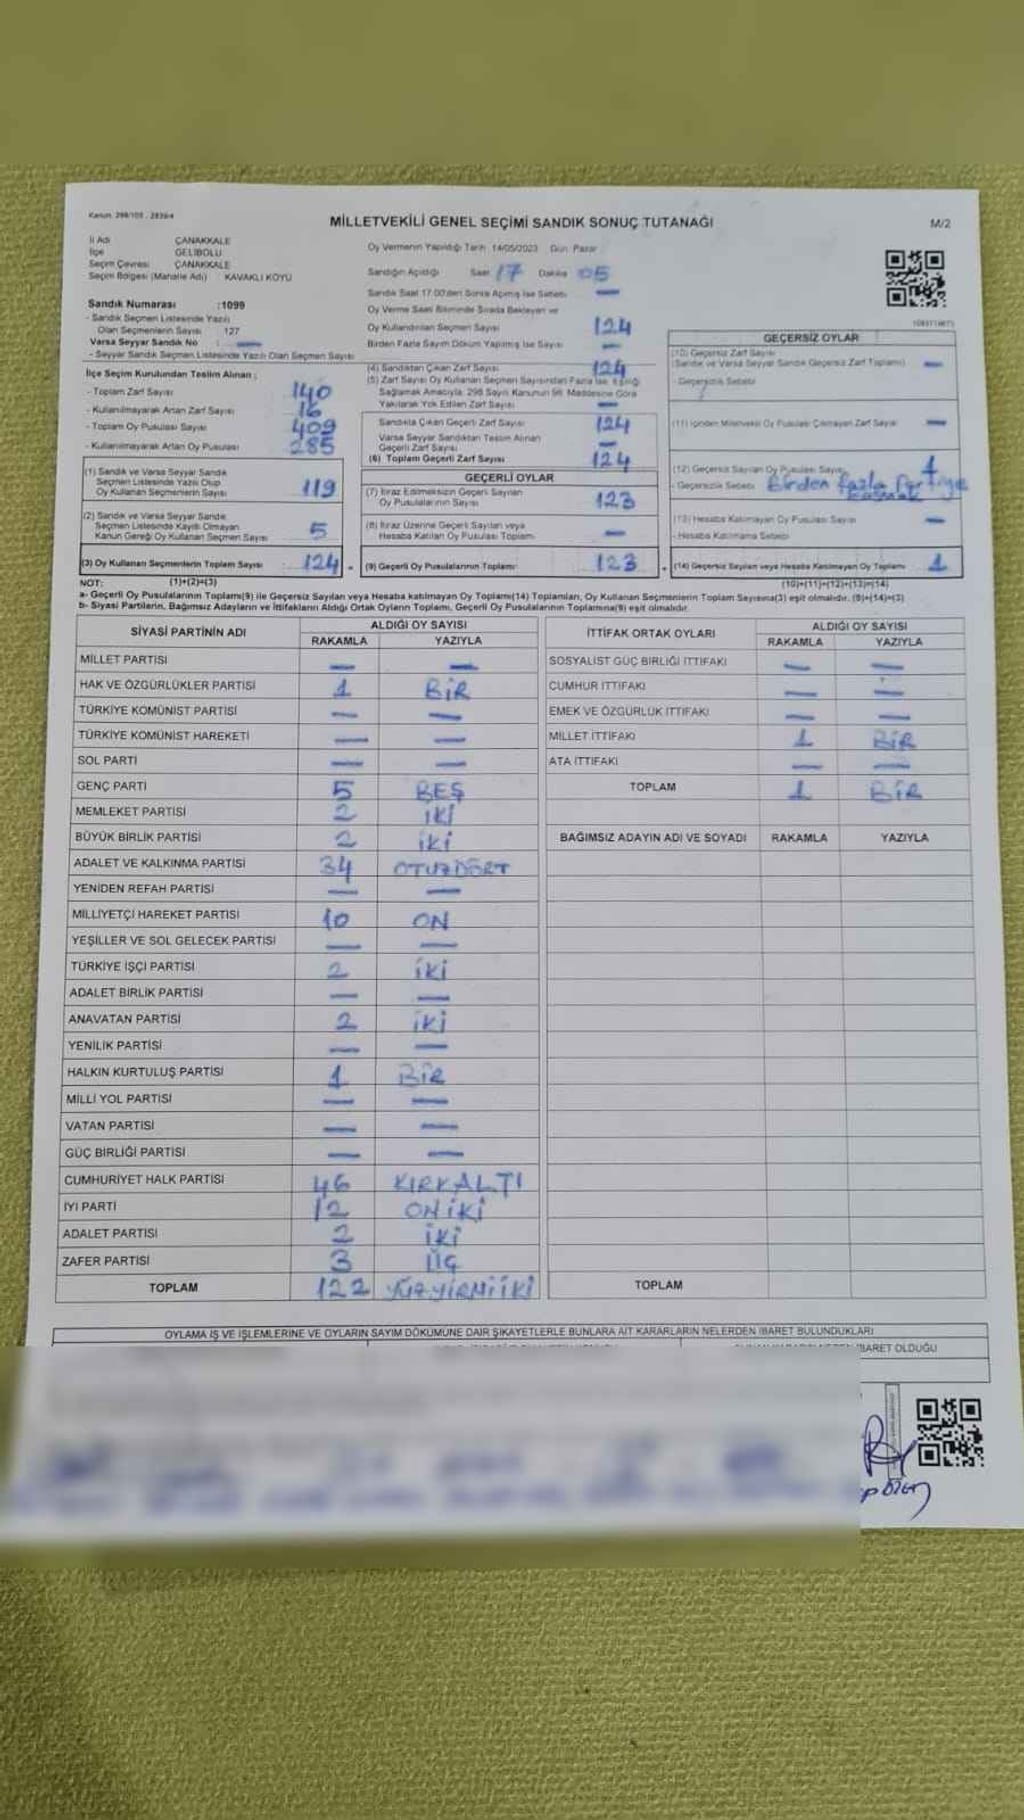 Kanun: 298/105 - 2839/4
MİLLETVEKİLİ GENEL SEÇİMİ SANDIK SONUÇ TUTANAĞI
M/2
İl Adı ÇANAKKALE
İlçe GELİBOLU
Seçim Çevresi ÇANAKKALE
Seçim Bölgesi (Mahalle Adı) KAVAKLI KÖYÜ
Sandık Numarası :1099
- Sandık Seçmen Listesinde Yazılı
Olan Seçmenlerin Sayısı 127
Varsa Seyyar Sandık No : —
- Seyyar Sandık Seçmen Listesinde Yazılı Olan Seçmen Sayısı
İlçe Seçim Kurulundan Teslim Alınan ;
- Toplam Zarf Sayısı 140
- Kullanılmayarak Artan Zarf Sayısı 16
- Toplam Oy Pusulası Sayısı 409
- Kullanılmayarak Artan Oy Pusulası 285
(1) Sandık ve Varsa Seyyar Sandık
Seçmen Listesinde Yazılı Olup
Oy Kullanan Seçmenlerin Sayısı 119
(2) Sandık ve Varsa Seyyar Sandık
Seçmen Listesinde Kayıtlı Olmayan
Kanun Gereği Oy Kullanan Seçmen Sayısı 5
(3) Oy Kullanan Seçmenlerin Toplam Sayısı 124
Oy Vermenin Yapıldığı Tarih 14/05/2023 Gün: Pazar
Sandığın Açıldığı Saat 17 Dakika 05
Sandık Saat 17.00'den Sonra Açılmış İse Sebebi —
Oy Verme Saati Bitiminde Sırada Bekleyen ve
Oy Kullandırılan Seçmen Sayısı 124
Birden Fazla Sayım Döküm Yapılmış İse Sayısı —
(4) Sandıktan Çıkan Zarf Sayısı 124
(5) Zarf Sayısı Oy Kullanan Seçmen Sayısından Fazla İse, Eşitliği
Sağlamak Amacıyla, 298 Sayılı Kanunun 98. Maddesine Göre
Yakılarak Yok Edilen Zarf Sayısı —
Sandıkta Çıkan Geçerli Zarf Sayısı 124
Varsa Seyyar Sandıktan Teslim Alınan
Geçerli Zarf Sayısı —
(6) Toplam Geçerli Zarf Sayısı 124
GEÇERLİ OYLAR
(7) İtiraz Edilmeksizin Geçerli Sayılan
Oy Pusulalarının Sayısı 123
(8) İtiraz Üzerine Geçerli Sayılan veya
Hesaba Katılan Oy Pusulası Toplamı —
(9) Geçerli Oy Pusulalarının Toplamı 123
GEÇERSİZ OYLAR
(10) Geçersiz Zarf Sayısı
(Sandık ve Varsa Seyyar Sandık Geçersiz Zarf Toplamı) —
- Geçersizlik Sebebi
(11) İçinden Milletvekili Oy Pusulası Çıkmayan Zarf Sayısı —
(12) Geçersiz Sayılan Oy Pusulası Sayısı 1
- Geçersizlik Sebebi Birden fazla Partiye
basmak
(13) Hesaba Katılmayan Oy Pusulası Sayısı —
- Hesaba Katılmama Sebebi
(14) Geçersiz Sayılan veya Hesaba Katılmayan Oy Toplamı 1
NOT: (1)+(2)=(3)
(10)+(11)+(12)+(13)=(14)
a- Geçerli Oy Pusulalarının Toplamı(9) ile Geçersiz Sayılan veya Hesaba katılmayan Oy Toplamı(14) Toplamları, Oy Kullanan Seçmenlerin Toplam Sayısına(3) eşit olmalıdır. (9)+(14)=(3)
b- Siyasi Partilerin, Bağımsız Adayların ve İttifakların Aldığı Ortak Oyların Toplamı, Geçerli Oy Pusulalarının Toplamına(9) eşit olmalıdır.
SİYASİ PARTİNİN ADI ALDIĞI OY SAYISI
RAKAMLA YAZIYLA
MİLLET PARTİSİ — —
HAK VE ÖZGÜRLÜKLER PARTİSİ 1 BİR
TÜRKİYE KOMÜNİST PARTİSİ — —
TÜRKİYE KOMÜNİST HAREKETİ — —
SOL PARTİ — —
GENÇ PARTİ 5 BEŞ
MEMLEKET PARTİSİ 2 İKİ
BÜYÜK BİRLİK PARTİSİ 2 İKİ
ADALET VE KALKINMA PARTİSİ 34 OTUZDÖRT
YENİDEN REFAH PARTİSİ — —
MİLLİYETÇİ HAREKET PARTİSİ 10 ON
YEŞİLLER VE SOL GELECEK PARTİSİ — —
TÜRKİYE İŞÇİ PARTİSİ 2 İKİ
ADALET BİRLİK PARTİSİ — —
ANAVATAN PARTİSİ 2 İKİ
YENİLİK PARTİSİ — —
HALKIN KURTULUŞ PARTİSİ 1 BİR
MİLLİ YOL PARTİSİ — —
VATAN PARTİSİ — —
GÜÇ BİRLİĞİ PARTİSİ — —
CUMHURİYET HALK PARTİSİ 46 KIRKALTI
İYİ PARTİ 12 ONİKİ
ADALET PARTİSİ 2 İKİ
ZAFER PARTİSİ 3 ÜÇ
TOPLAM 122 YÜZYİRMİİKİ
İTTİFAK ORTAK OYLARI ALDIĞI OY SAYISI
RAKAMLA YAZIYLA
SOSYALİST GÜÇ BİRLİĞİ İTTİFAKI — —
CUMHUR İTTİFAKI — —
EMEK VE ÖZGÜRLÜK İTTİFAKI — —
MİLLET İTTİFAKI 1 BİR
ATA İTTİFAKI — —
TOPLAM 1 BİR
BAĞIMSIZ ADAYIN ADI VE SOYADI RAKAMLA YAZIYLA
TOPLAM
OYLAMA İŞ VE İŞLEMLERİNE VE OYLARIN SAYIM DÖKÜMÜNE DAİR ŞİKAYETLERLE BUNLARA AİT KARARLARIN NELERDEN İBARET BULUNDUKLARI
İBARET OLDUĞU